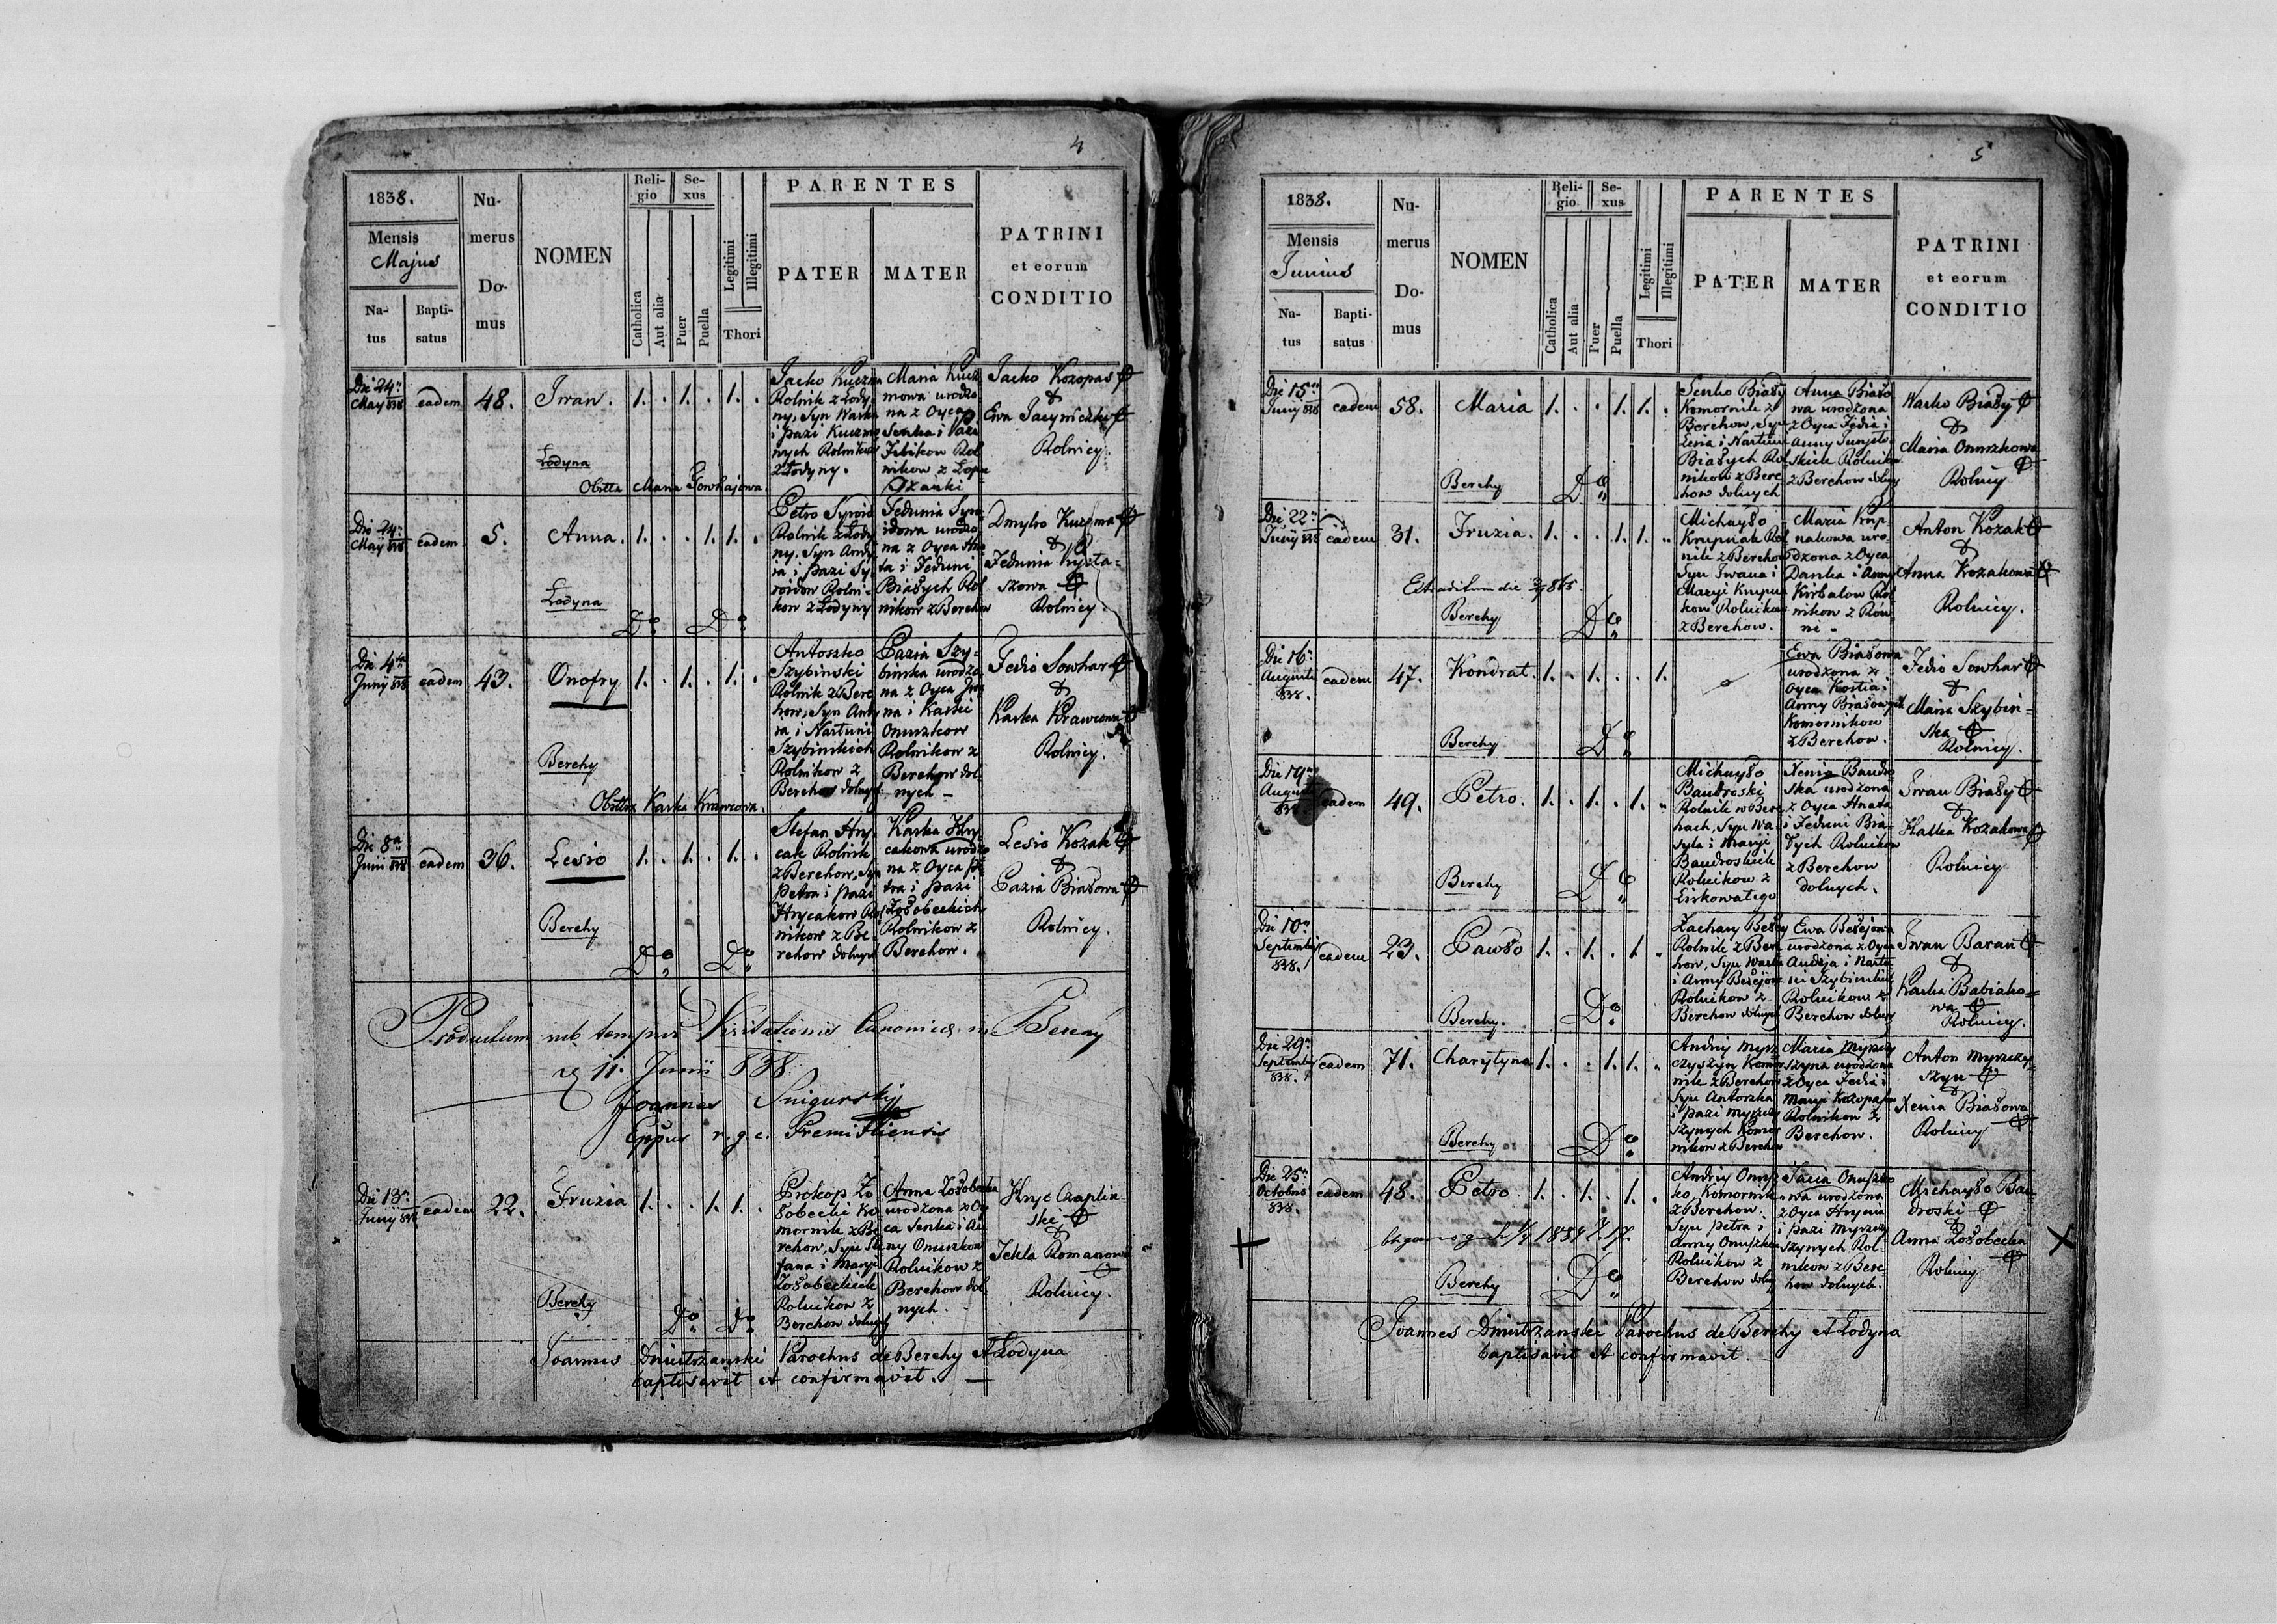 4
1838.
Mensis
Majus
Na-
tus
Bapti-
satus
Nu-
merus
Do-
mus
NOMEN
Reli-
gio
Catholica
Aut alia
Se-
xus
Puer
Puella
Legitimi
Illegitimi
Thori
PARENTES
PATER
MATER
PATRINI
et eorum
CONDITIO
Die 24a
May 838
eadem
48.
Iwan.
1. . 1. . 1. .
Łodyna
Obsttx Maria Sowhajowa.
Jacko Kuczma
Rolnik z Łody-
ny, Syn Waska
i Pazi Kuczmo
wych Rolnikow
z Łodyny.
Maria Kucz
mowa urodzo-
na z Oyca
Senka i Pazi
Rol
nikow z Łopu
szanki
Jacko Kozopas
&
Ewa
Rolnicy.
Die 24a
May 838
eadem
5.
Anna.
1. . . 1. 1. .
Łodyna
Do Do
Petro Syroid
Rolnik z Łody
ny, Syn Andr
ia i Pazi Sy-
roidow Rolni-
kow z Łodyny
Fedunia Syro-
idowa urodzo
na z Oyca Hna
ta i Feduni
Białych Rol
nikow z Berehow
Dmytro Kuczma
&
Fedunia
szowa
Rolnicy.
Die 4ta
Junij 838
eadem
43.
Onofry
1. . 1. . 1. .
Berehy
Obsttx Kaska Krawcowa.
Antoszko
Szybinski
Rolnik z Bere
how, Syn Andr
ia i Nastuni
Szybinskich
Rolnikow z
Berehow dolnych
Pazia Szy-
binska urodzo
na z Oyca Iwa
na i Kaski
Onuszkow
Rolnikow z
Berehow dol
nych -
Fedio Sowhar
&
Kaska Krawcowa
Rolnicy.
Die 8a
Junii 838
eadem
36.
Lesio
1. . 1. . 1. .
Berehy
Do Do
Stefan Hry-
cak Rolnik
z Berehow, Syn
Petra i Pazi
Hrycakow Rol
nikow z Be-
rehow dolnych
Kaska Hry
cakowa urodzo
na z Oyca Pe
tra i Pazi
Łosobeckich
Rolnikow z
Berehow.
Lesio Kozak
&
Pazia Białowa
Rolnicy.
Productum sub tempus Visitationis Canonicae in Berehy
11. Junii 838
Joannes Snigurskij
Eppus r. g. c. Premisliensis
Die 13a
Junij 838
eadem
22.
Fruzia
1. . . 1. 1. .
Berehy
Do Do
Prokop Ło
sobecki Ko
mornik z Be
rehow, Syn Ste
fana i Maryi
Łosobeckich
Rolnikow z
Berehow dolnych
Anna Łosobecka
urodzona z Oy
ca Senka i An
ny Onuszkow
Rolnikow z
Berehow dol
nych.
Hryc Czaplin-
ski
&
Tekla Romanowa
Rolnicy.
Joannes Dniestrzanski Parochus de Berehy et Łodyna
baptisavit et confirmavit.
5
1838.
Mensis
Junius
Na-
tus
Bapti-
satus
Nu-
merus
Do-
mus
NOMEN
Reli-
gio
Catholica
Aut alia
Se-
xus
Puer
Puella
Legitimi
Illegitimi
Thori
PARENTES
PATER
MATER
PATRINI
et eorum
CONDITIO
Die 15a
Junij 838
eadem
58.
Maria
1. . . 1. 1. .
Berehy
Do
Senko Biały
Komornik z
Berehow, Syn
Lesia i Nastuni
Białych Rol
nikow z Bere
how dolnych
Anna Biało
wa urodzona
z Oyca Fedia i
Anny
Rolnikow
z Berehow dolnych
Wasko Biały
&
Maria Onuszkowa
Rolnicy
Die 22a
Junij 838
eadem
31.
Fruzia.
1. . . 1. 1. .
Extraditum die 865
Berehy
Do
Michayło
Krupniak Rol
nik z Berehow
Syn Iwana i
Maryi Krupnia
kow Rolnikow
z Berehow.
Maria Krup
nakowa uro-
dzona z Oyca
Danka i Anny
Rol
nikow z Row
ni -
Anton Kozak
&
Anna Kozakowa
Rolnicy.
Die 16a
Augusti
838.
eadem
47.
Kondrat.
1. . 1. . . 1.
Berehy
Do
Ewa Białowa
urodzona z
Oyca Kostia i
Anny Białowych
Komornikow
z Berehow.
Fedio Sowhar
&
Maria Szybin-
ska
Rolnicy.
Die 19a
Augusti
838.
eadem
49.
Petro.
1. . 1. . 1. .
Berehy
Do
Michayło
Bandroski
Rolnik w Bere
hach, Syn Wa
syla i Maryi
Bandroskich
Rolnikow z
Liskowatego
Xenia Bandro
ska urodzona
z Oyca Hnata
i Feduni Bia-
łych Rolnikow
z Berehow
dolnych.
Iwan Biały
&
Halka Kozakowa
Rolnicy
Die 10a
Septembris
838.
eadem
23.
Pawło
1. . 1. . 1. .
Berehy.
Do
Zachary Beley
Rolnik z Bere
how, Syn Waska
i Anny Belejow
Rolnikow z
Berehow dolnych
Ewa Belejowa
urodzona z Oyca
Andrja i Nastu
ni Szybinskich
Rolnikow z
Berehow dolnych
Iwan Baran
&
Kaska Babiako-
wa
Rolnicy.
Die 29a
Septembris
838.
eadem
71.
Charytyna
1. . . 1. 1. .
Berehy
Do
Andrij Myrz
czyszyn Komor
nik z Berehow
Syn Antoszka
i Pazi
szynych Komor
nikow z Berehow
Maria
szyna urodzona
z Oyca Fedia i
Maryi Kozopasow
Rolnikow z
Berehow.
Anton
szyn
&
Xenia Białowa
Rolnicy
Die 25a
Octobris
838.
eadem
48.
Petro
1. . 1. . 1. .
Berehy
Do
Andrij Onusz
ko, Komornik
z Berehow.
Syn Petra i
Anny Onuszkow
Rolnikow z
Berehow dolnych
Pazia Onuszko
wa urodzona
z Oyca Hrynia
i Pazi
szynych Rol-
nikow z Bere
how dolnych.
Michayło Ban
droski
&
Anna Łosobecka
Rolnicy
Joannes Dniestrzanski Parochus de Berehy et Łodyna
baptisavit et confirmavit.